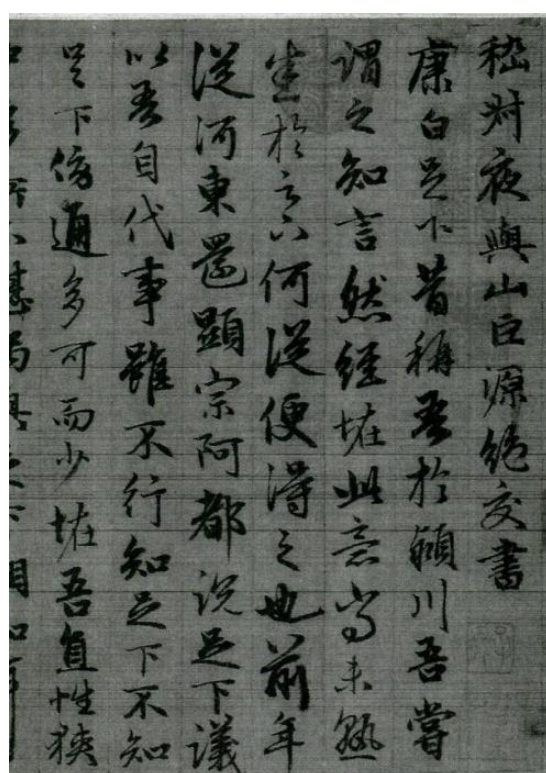 嵇叔夜與山巨源絕交書
康白足下昔稱吾於潁川吾嘗
謂之知言然經怪此意尚未熟
悉於足下何從便得之也前年
從河東還顯宗阿都說足下議
以吾自代事雖不行知足下不知
足下傍通多可而少怪吾直性狹